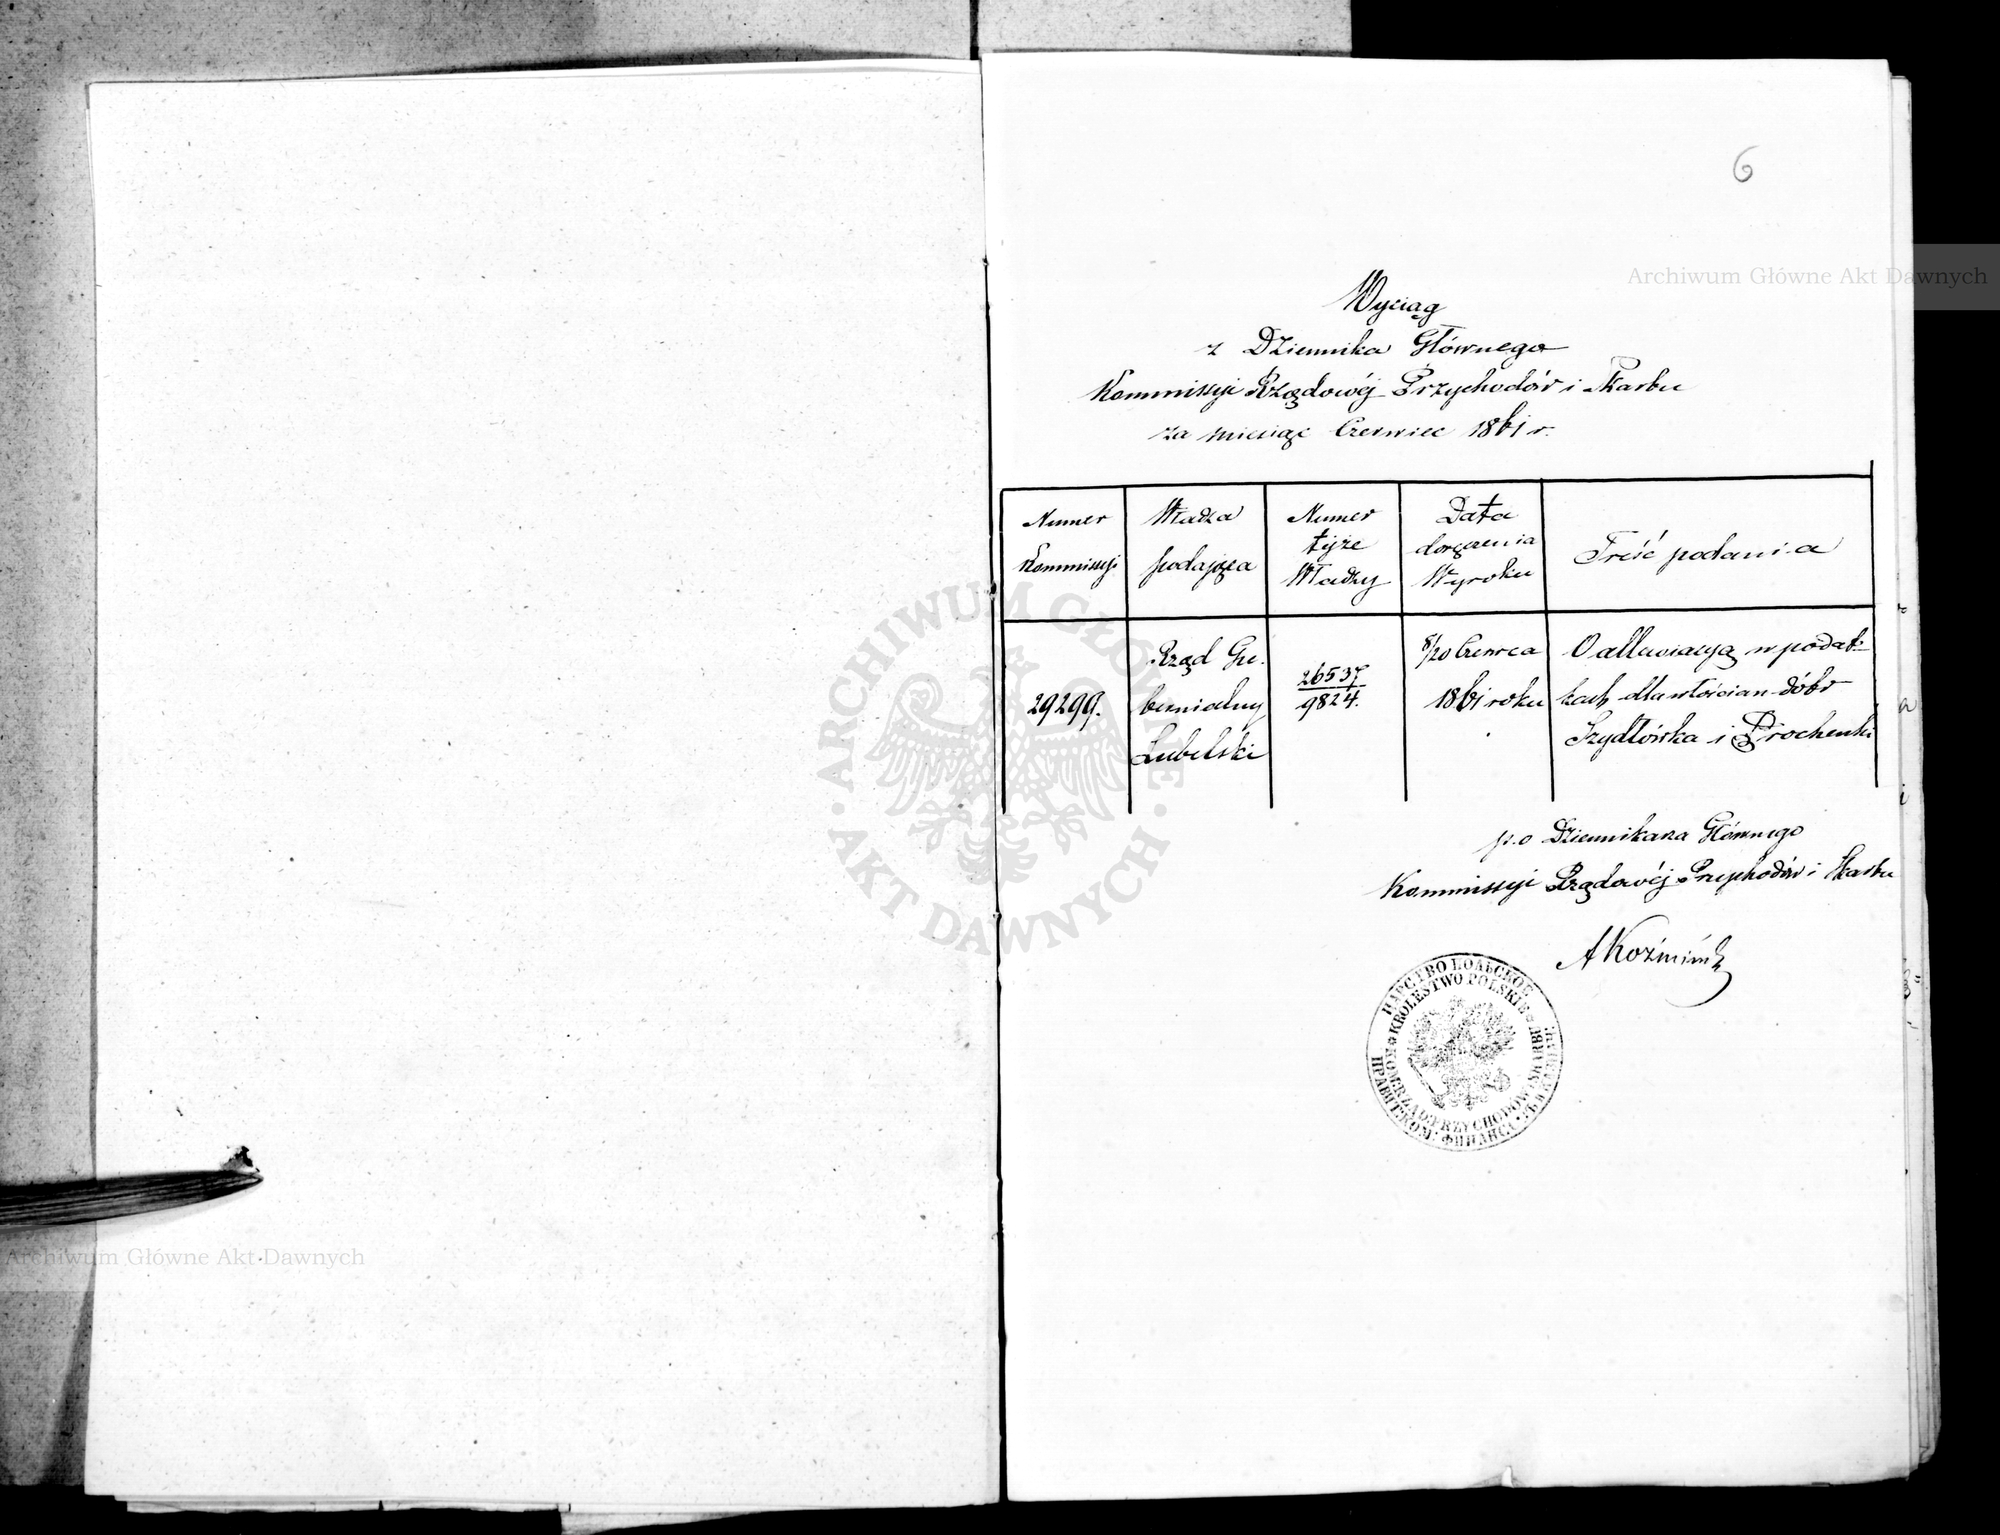 6
Archiwum Główne Akt Dawnych
Wyciąg
z Dziennika Głównego
Kommissyi Rządowéj Przychodów i Skarbu
za miesiąc Czerwiec 1861 r.
Numer Kommissyi
Władza podająca
Numer tejże Władzy
Data doręczenia Wyroku
Treść podania
29299.
Rząd Gu-
bernialny
Lubelski
26537
9824.
8/20 Czerwca
1861 roku
O allewiacyą w podat-
kach dla włościan dóbr
Szydłówka i Prochenki
p.o Dziennikarza Głównego
Kommissyi Rządowéj Przychodów i Skarbu
A Koźmiński
ЦАРСТВО ПОЛЬСКОЕ
KROLESTWO POLSKIE
KOM: RZĄD: PRZYCHODOW I SKARBU
ПРАВИТ: КОМ: ФИНАНС:
ARCHIWUM GŁÓWNE
AKT DAWNYCH
Archiwum Główne Akt Dawnych